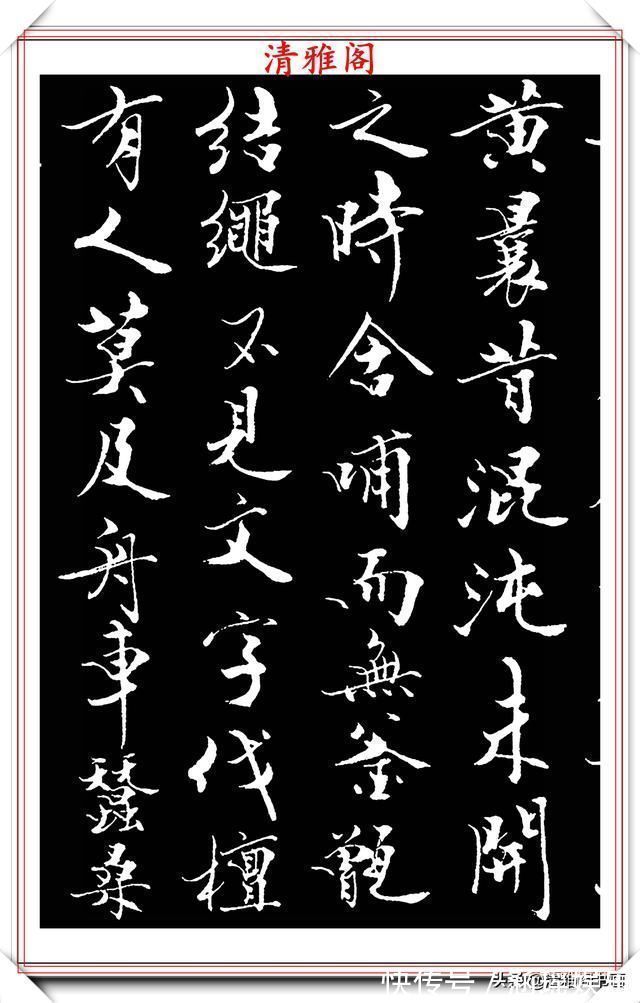 清雅阁
黄曩昔混沌未開
之時舍哺而無釜甑
結繩不見文字伐檀
有人莫及舟車蠶桑
快传号
头条@清雅阁书斋